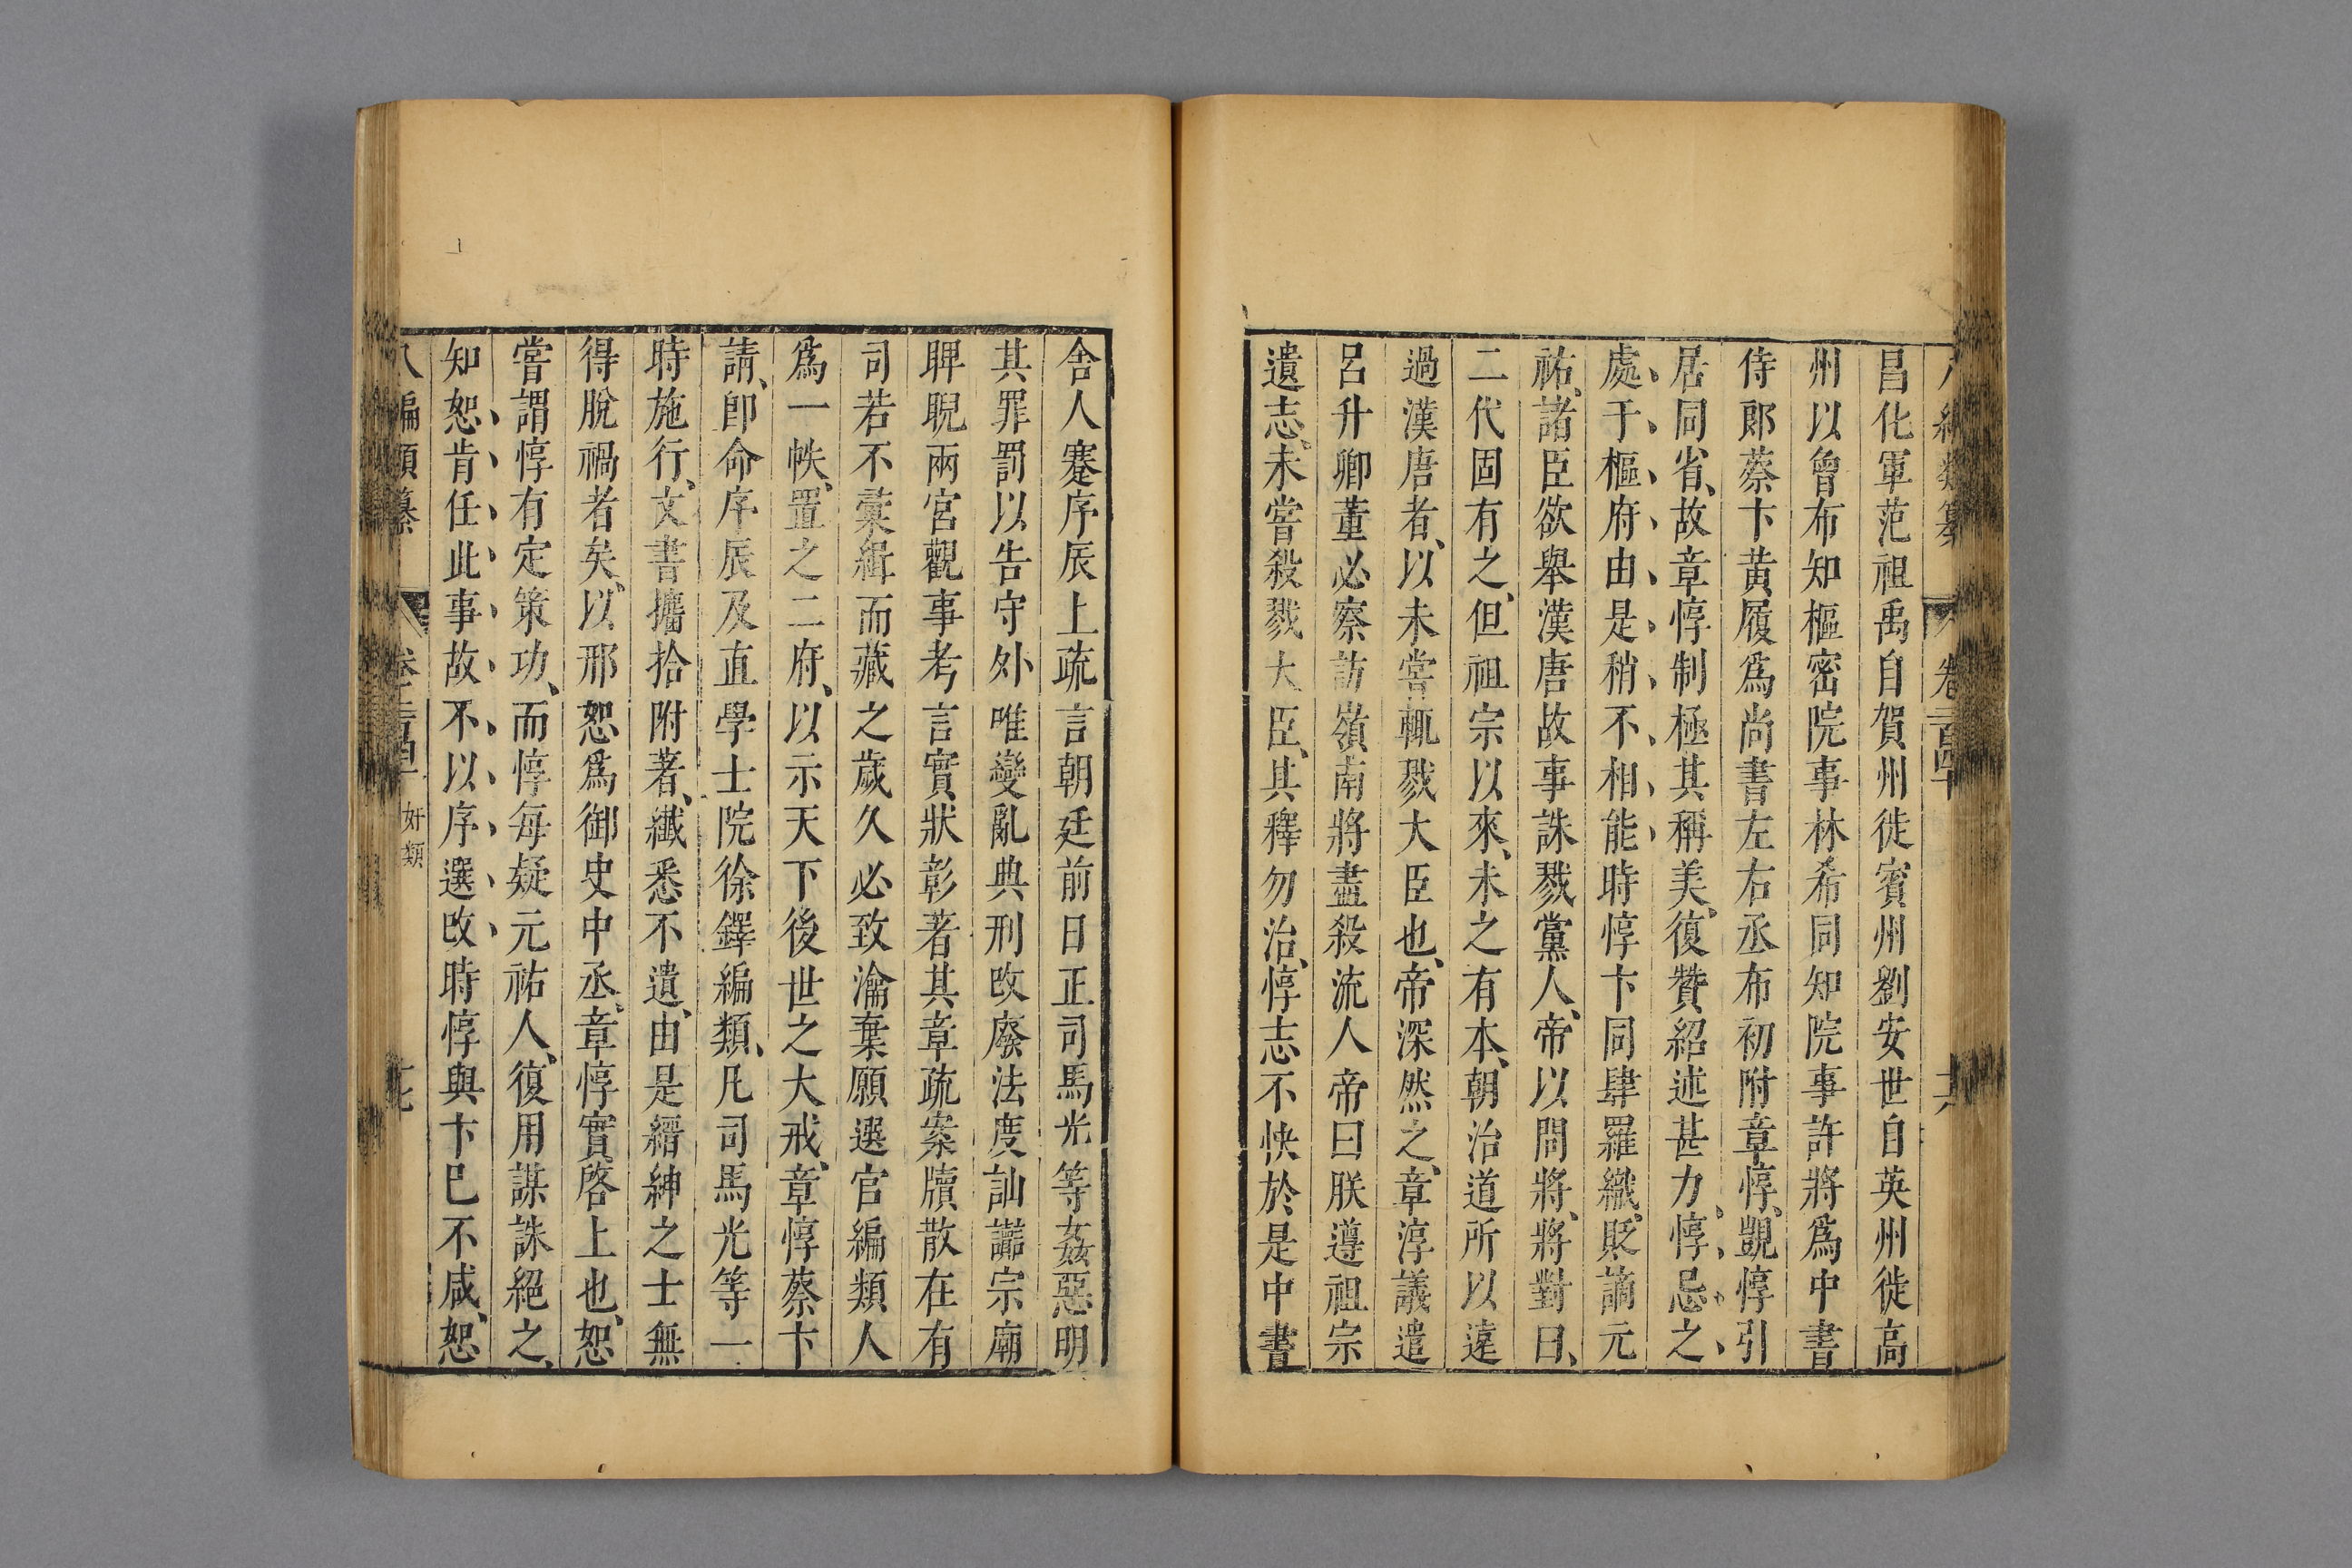 八編類纂 卷二百四十 共
昌化軍范祖禹自賀州徙賓州劉安世自英州徙高
州以曾布知樞密院事林希同知院事許將爲中書
侍郎蔡卞黃履爲尚書左右丞布初附章惇、覬惇引
居同省、故章惇制極其稱美、復贊紹述甚力、惇、忌、之、
處、于、樞、府、由、是、稍、不、相、能、時惇卞同肆羅織、貶謫元
祐、諸臣欲舉漢唐故事誅戮黨人、帝以問將、將對曰、
二代固有之、但祖宗以來、未之有本、朝治道所以遠
過漢唐者、以未嘗輒戮大臣也、帝深然之、章淳議遣
呂升卿董必察訪嶺南將盡殺流人帝曰朕遵祖宗
遺志、未嘗殺戮大臣、其釋勿治、惇志不快於是中書
舍人蹇序辰上疏言朝廷前日正司馬光等姦惡明
其罪罰以告守外唯變亂典刑改廢法度訕讟宗廟
睥睨兩宮觀事考言實狀彰著其章疏案牘散在有
司若不彙緝而藏之歲久必致淪棄願選官編類人
爲一帙、置之二府、以示天下後世之大戒、章惇蔡卞
請、卽命序辰及直學士院徐鐸編類、凡司馬光等一
時施行、文書攟拾附著、纖悉不遺、由是縉紳之士無
得脫禍者矣、以邢恕爲御史中丞、章惇實啓上也、恕
嘗謂惇有定策功、而惇每疑元祐人、復用謀誅絕之、
知恕、肯、任、此、事、故、不、以、序、選、改、時惇與卞巳不咸、恕
八編類纂 卷二百四十 奸類